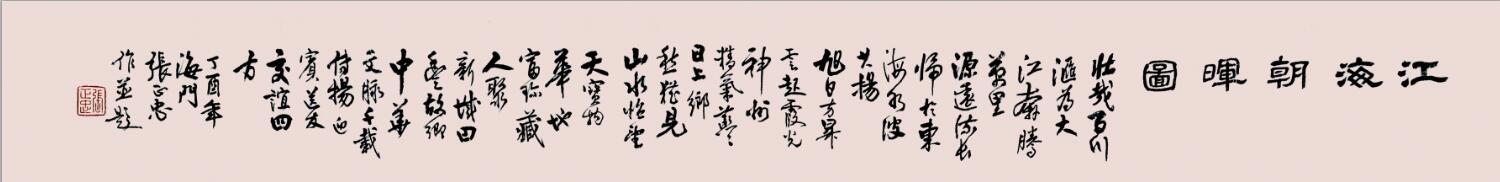 江海朝暉圖
壯哉百川
滙為大
江奔騰
萬里
源遠流長
歸於東
海水波
共揚
旭日方昇
雲起霞光
神州
精氣蒸
日上鄉
愁猶見
山水怡望
天寶物
華地
富珍藏
人聚
新城田
疊故鄉
中華
文脉千載
待揚迎
賓送友
交誼四
方
丁酉年
海門
張正忠
作並題